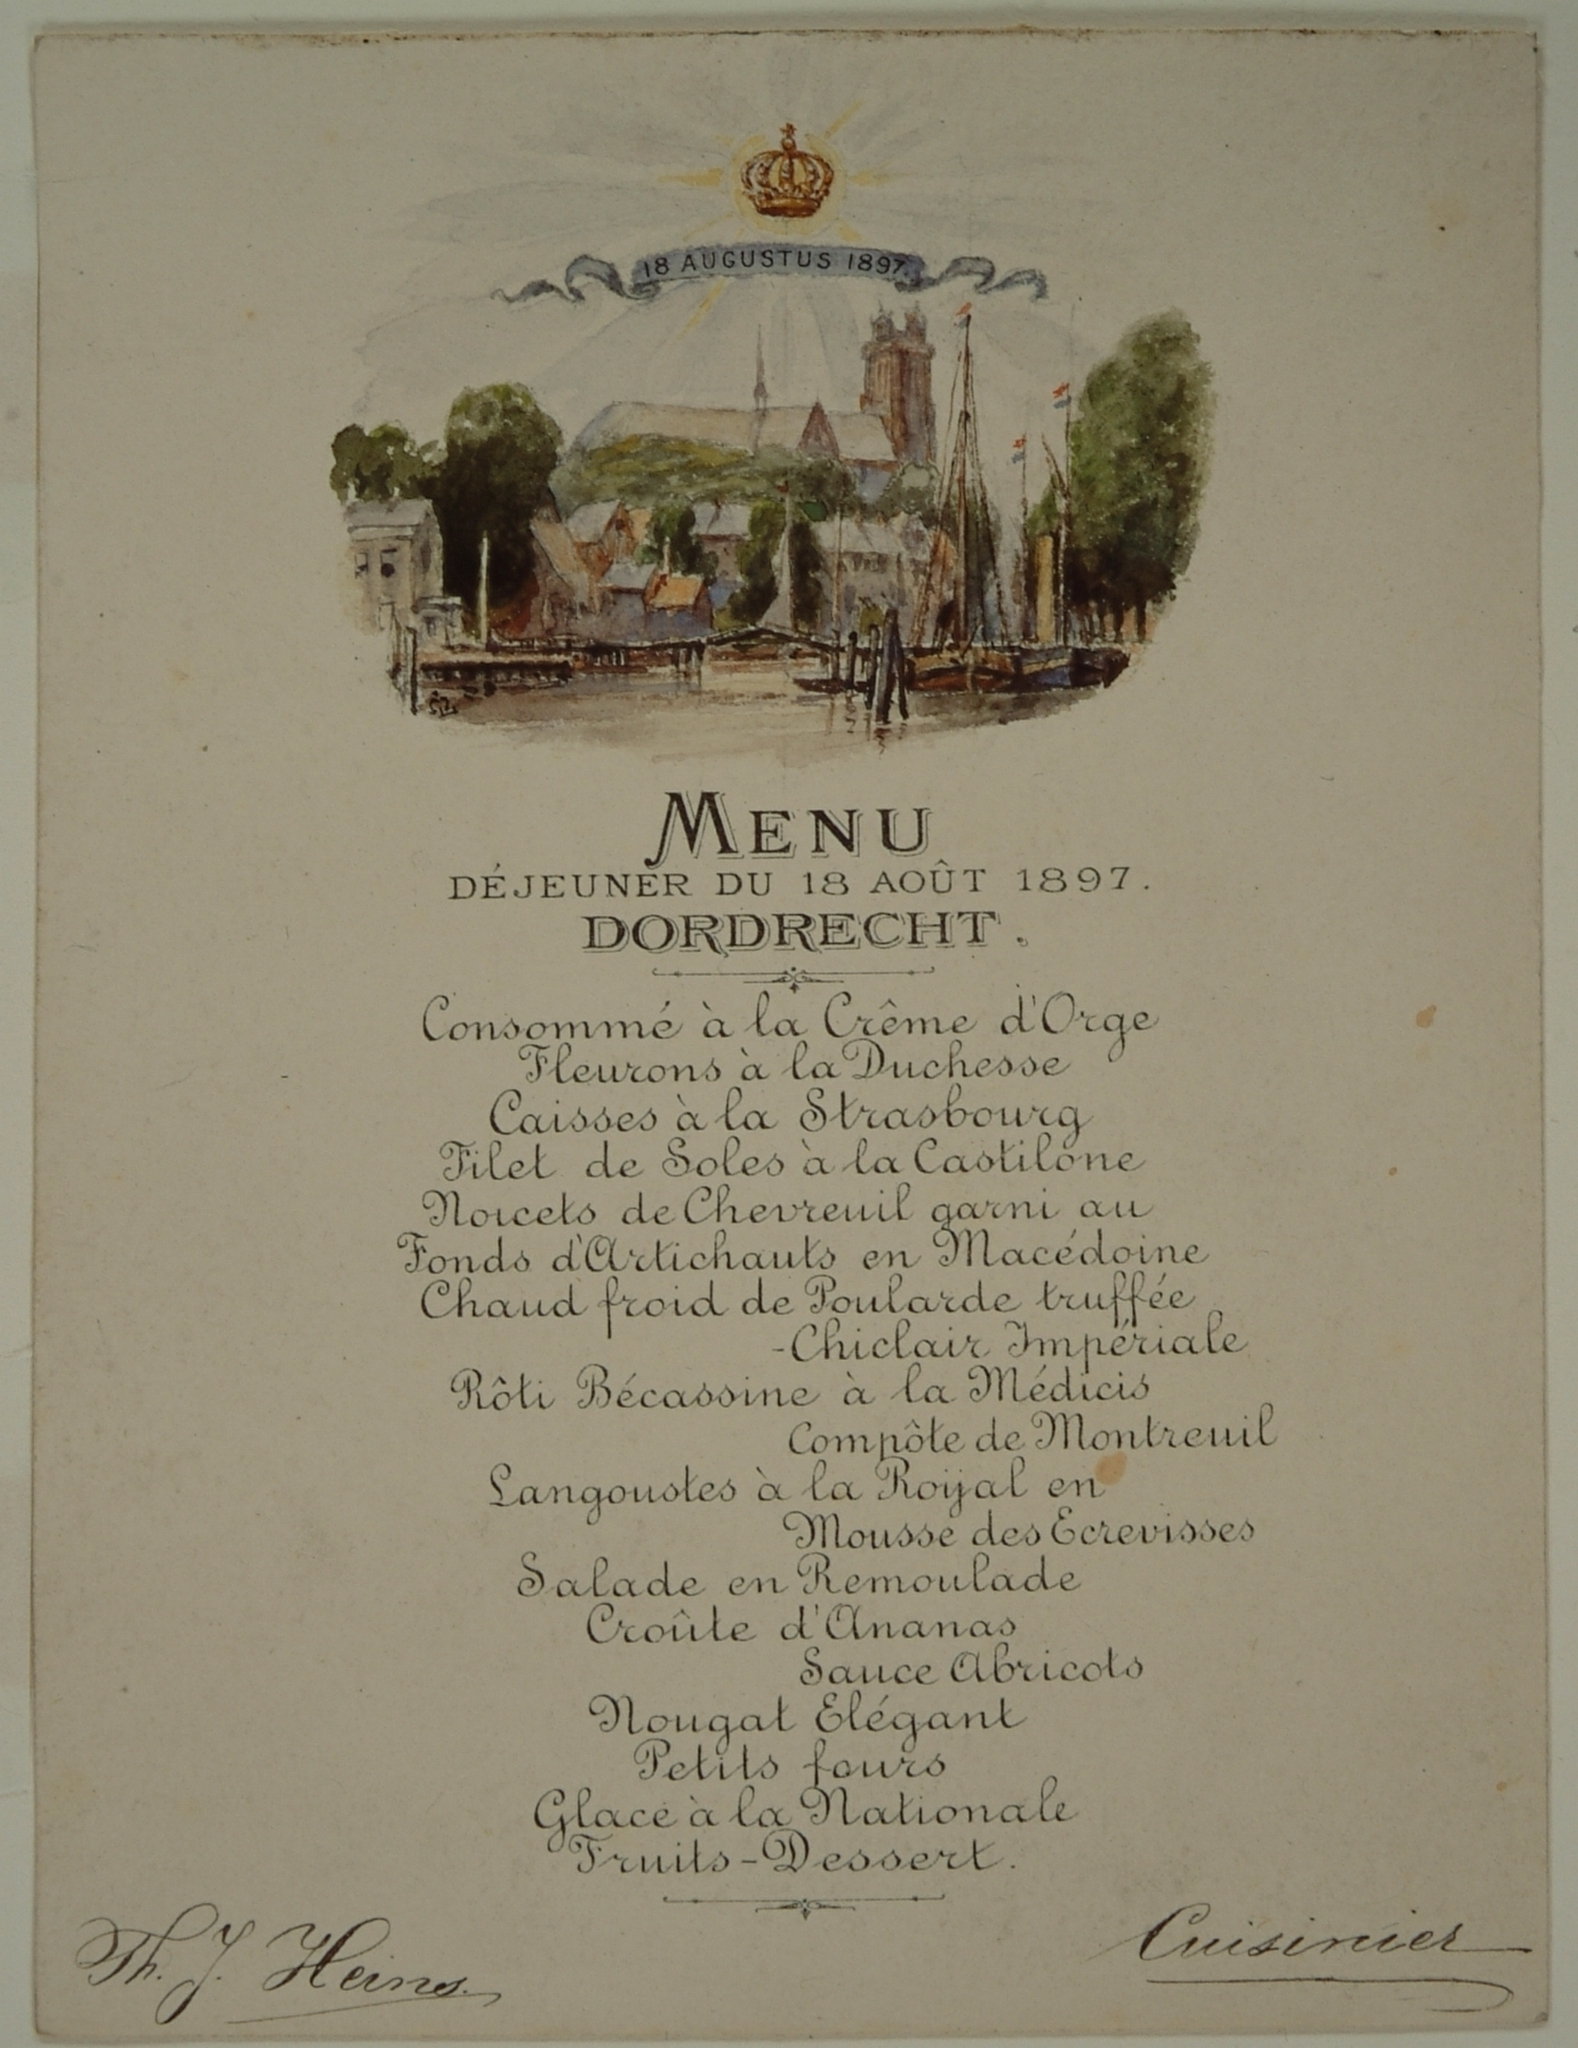 18 AUGUSTUS 1897.
MENU
DÉJEUNER DU 18 AOÛT 1897.
DORDRECHT.
Consommé à la Crême d'Orge
Fleurons à la Duchesse
Caisses à la Strasbourg
Filet de Soles à la Castilône
Noicets de Chevreuil garni au
Fonds d'Artichauts en Macédoine
Chaud froid de Poularde truffée
-Chiclair Impériale
Rôti Bécassine à la Médicis
Compôte de Montreuil
Langoustes à la Roijal en
Mousse des Ecrevisses
Salade en Remoulade
Croûte d'Ananas
Sauce Abricots
Nougat Elégant
Petits fours
Glace à la Nationale
Fruits-Dessert.
Th. J. Heins.
Cuisinier